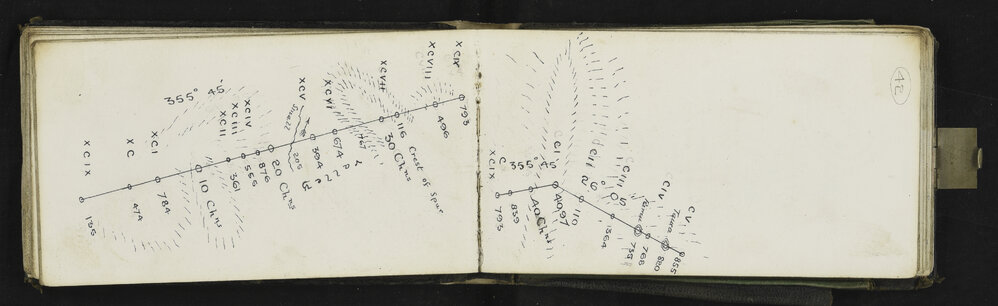 42
355° 45'
XCIX
XC
XCI
XCII
XCIII
XCIV
XCV
XCVI
XCVII
XCVIII
XCIX
136
474
784
10 Chns
361
556
876
20 Chns
394
205
674
767
30 Chns
116
Crest of Spur
496
793
XCIX
C
355° 45'
CI
CII
CIII
26° 05'
CIV
CV
793
839
40 Chns
4097
110
364
735
768
880
855